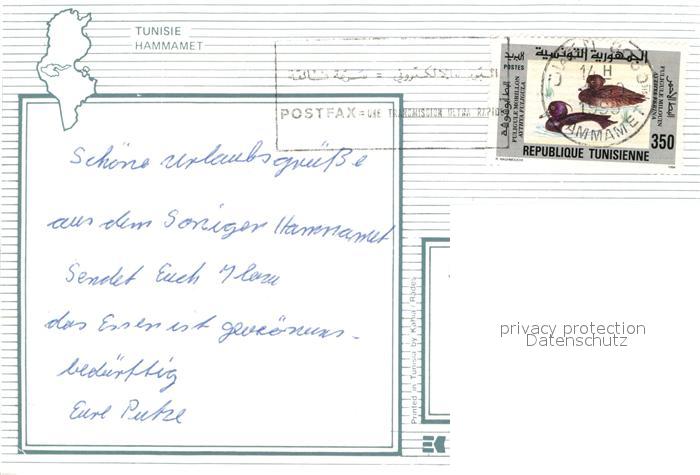 TUNISIE
HAMMAMET
البريد الالكتروني = سرعة فائقة
POSTFAX = UNE TRANSMISSION ULTRA RAPIDE
الجمهورية التونسية
البريد
POSTES
FULIGULE MORILLON
AYTHYA FULIGULA
FULIGULE MILOUIN
AYTHYA FERINA
14 H
HAMMAMET
350
REPUBLIQUE TUNISIENNE
Schöne Urlaubsgrüße
aus dem Soniger Hammamet
Sendet Euch
das Essen ist gewönuns-
bedürftig
Eure
Printed in Tunisia by Kahia / Rades
privacy protection
Datenschutz